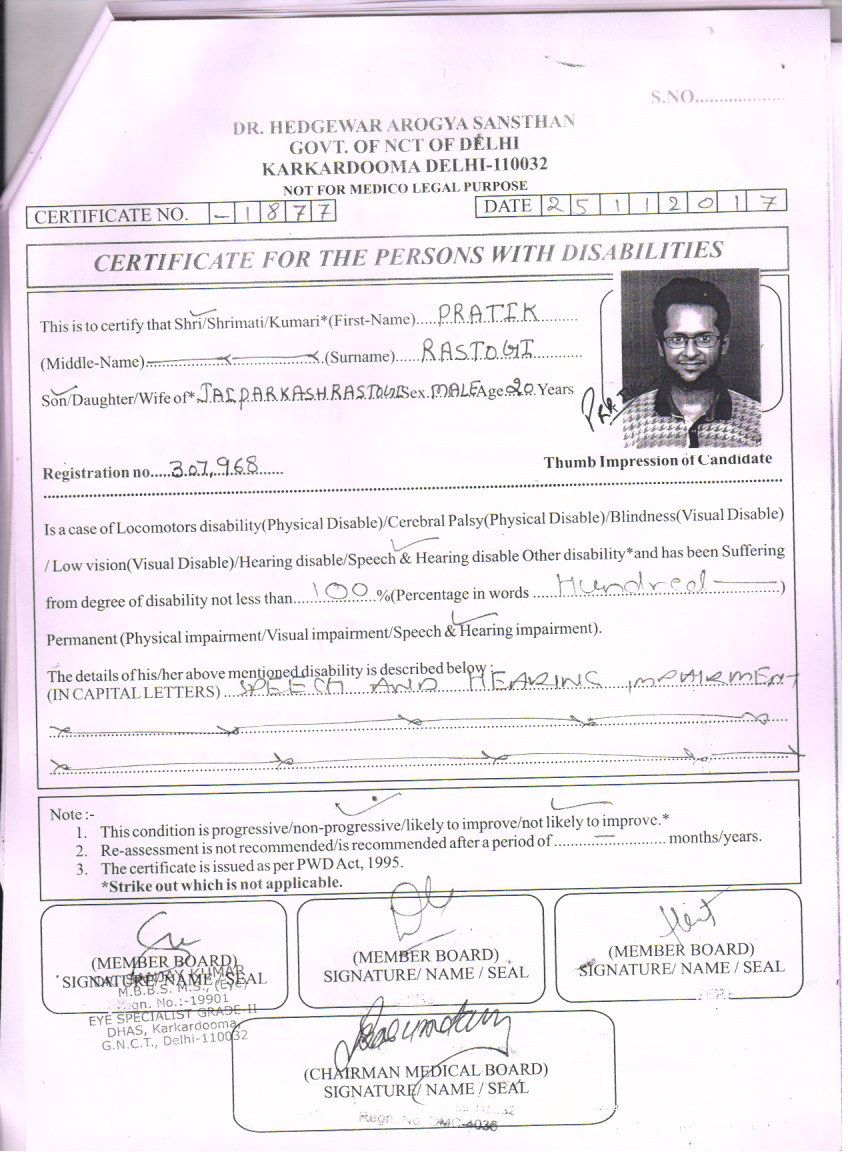 S.NO...................
DR. HEDGEWAR AROGYA SANSTHAN
GOVT. OF NCT OF DELHI
KARKARDOOMA DELHI-110032
NOT FOR MEDICO LEGAL PURPOSE
CERTIFICATE NO. -1877 DATE 25112017
CERTIFICATE FOR THE PERSONS WITH DISABILITIES
This is to certify that Shri/Shrimati/Kumari*(First-Name)....PRATIK
(Middle-Name) (Surname)....RASTOGI
Son/Daughter/Wife of*.JAI PARKASH RASTOGI Sex.MALE Age 20 Years
Registration no....307,968
Thumb Impression of Candidate
Is a case of Locomotors disability(Physical Disable)/Cerebral Palsy(Physical Disable)/Blindness(Visual Disable)
/ Low vision(Visual Disable)/Hearing disable/Speech & Hearing disable Other disability*and has been Suffering
from degree of disability not less than....100.%(Percentage in words ....Hundred )
Permanent (Physical impairment/Visual impairment/Speech & Hearing impairment).
The details of his/her above mentioned disability is described below :
(IN CAPITAL LETTERS) ...SPEECH AND HEARING IMPAIRMENT
Note :-
1. This condition is progressive/non-progressive/likely to improve/not likely to improve.*
2. Re-assessment is not recommended/is recommended after a period of .......—....... months/years.
3. The certificate is issued as per PWD Act, 1995.
*Strike out which is not applicable.
(MEMBER BOARD)
SIGNATURE/ NAME / SEAL
SANJAY KUMAR
M.B.B.S. M.S., (EYE)
Regn. No.:-19901
EYE SPECIALIST GRADE-II
DHAS, Karkardooma,
G.N.C.T., Delhi-110032
(MEMBER BOARD)
SIGNATURE/ NAME / SEAL
(MEMBER BOARD)
SIGNATURE/ NAME / SEAL
(CHAIRMAN MEDICAL BOARD)
SIGNATURE/ NAME / SEAL
Regn. No. DMC-4036